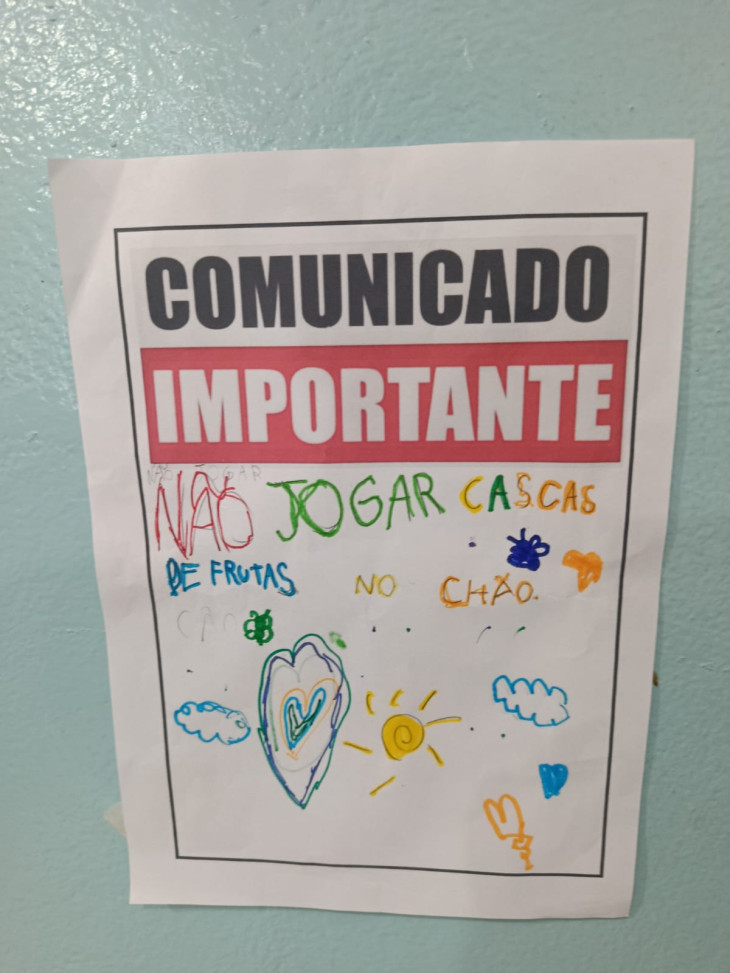 COMUNICADO
IMPORTANTE
NÃO JOGAR
NÃO JOGAR CASCAS
DE FRUTAS NO CHÃO.